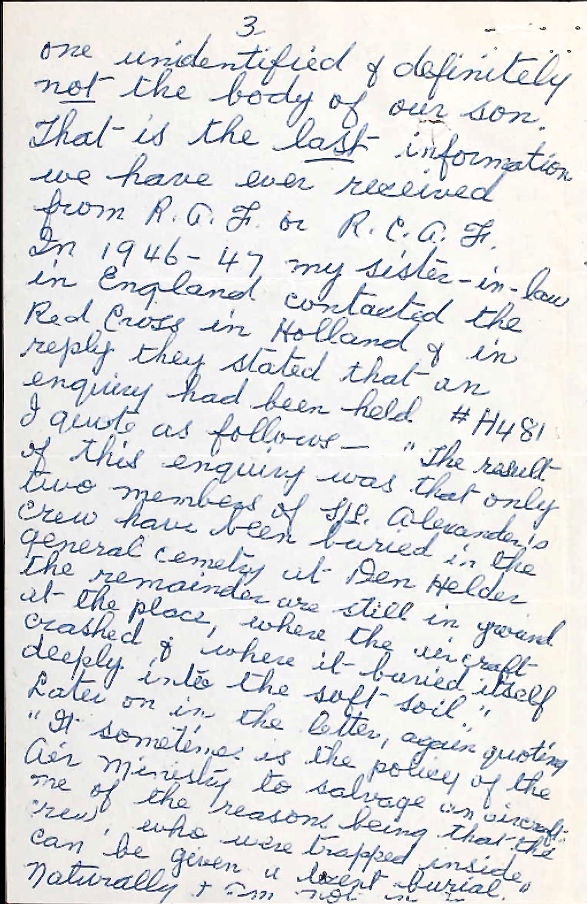 3
one unidentified & definitely
not the body of our son.
That is the last information
we have ever received
from R.A.F. or R.C.A.F.
In 1946-47 my sister-in-law
in England contacted the
Red Cross in Holland & in
reply they stated that an
enquiry had been held #H481
I quote as follows— "The result
of this enquiry was that only
two members of S/L. Alexander's
crew have been buried in the
general cemetry at Den Helder
the remainder are still in ground
at the place, where the aircraft
crashed & where it buried itself
deeply into the soft soil".
Later on in the letter, again quoting
"It sometimes is the policy of the
Air Ministry to salvage an aircraft
me of the reasons being that the
crew, who were trapped inside
can be given a decent burial."
Naturally I am not in